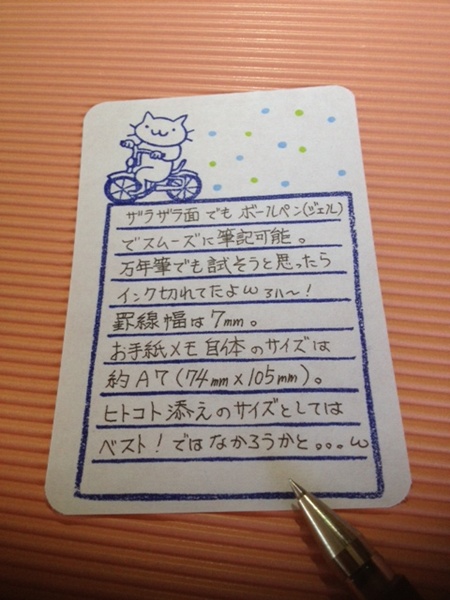 ザラザラ面でもボールペン(ジェル)
でスムーズに筆記可能。
万年筆でも試そうと思ったら
インク切れてたよω ヨハ〜!
罫線幅は7mm。
お手紙メモ自体のサイズは
約A7(74mm×105mm)。
ヒトコト添えのサイズとしては
ベスト!ではなかろうかと。。。ω